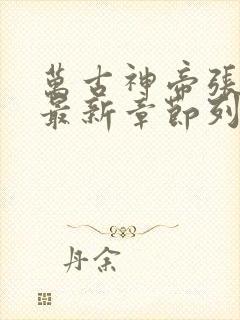 萬古神帝張
最新章節列
丹余